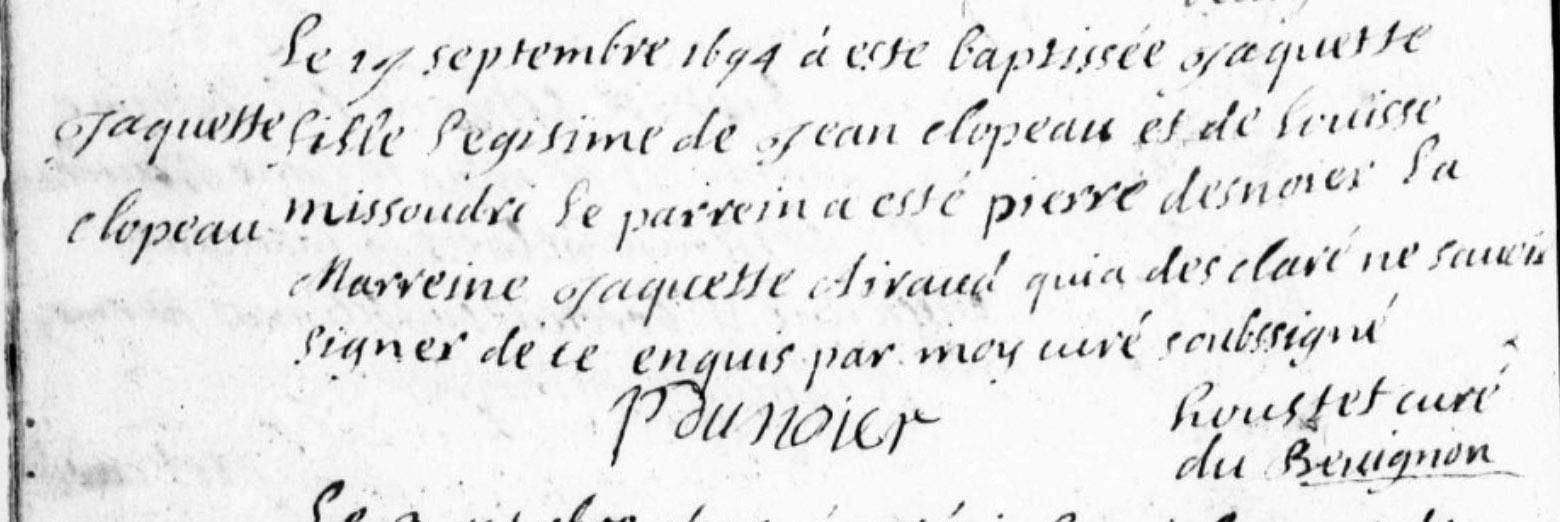 Le 19 septembre 1694 à esté baptissée Jaquette
Jaquette
fille legitime de Jean clopeau et de Louisse
clopeau
missoudri le parrein a esté pierre desnoier la
Marreine Jaquette Airaud qui a des claré ne savoir
signer de ce enquis par moy curé soubssigné
P dunoier
houstet curé
du Benignon